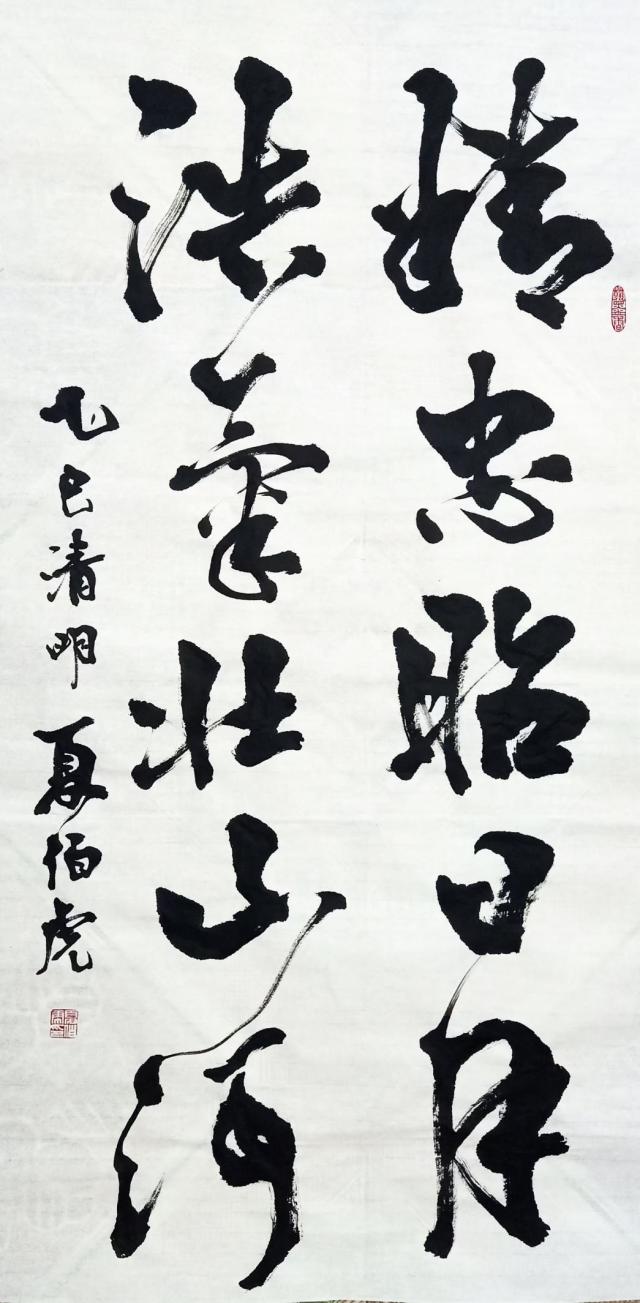 精忠昭日月
浩氣壮山河
乙巳清明 夏伯虎